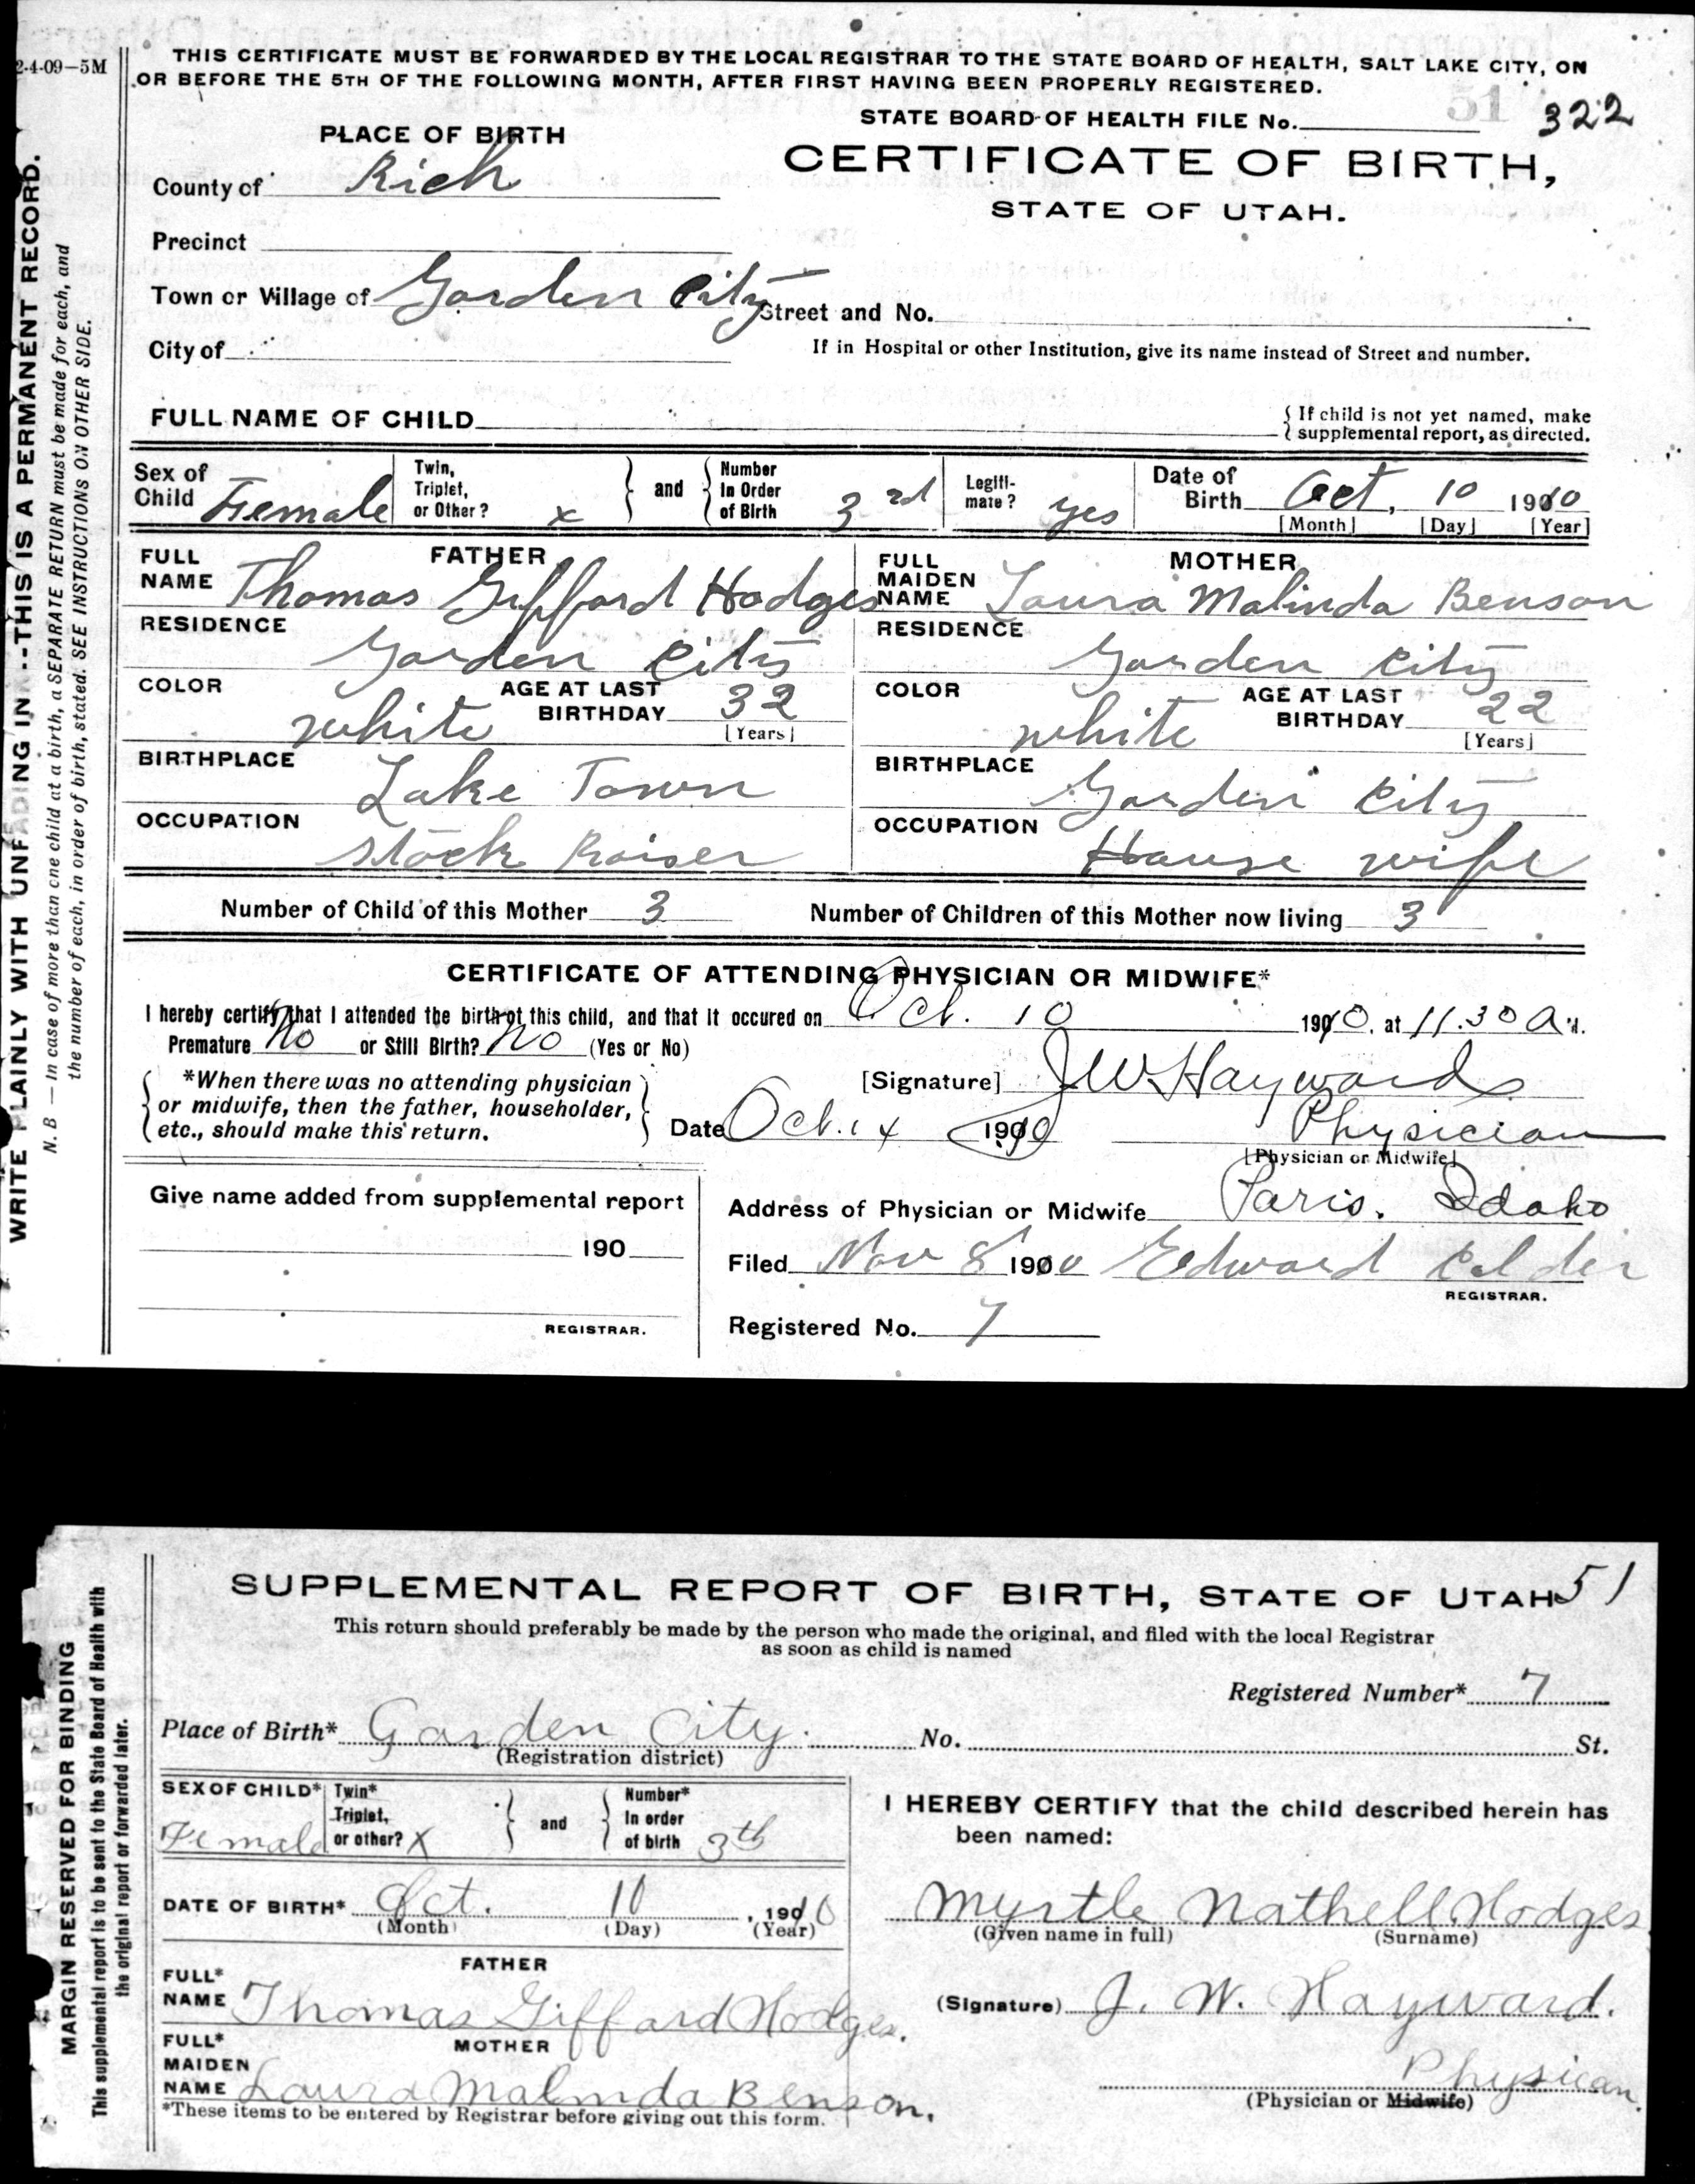 2-4-09—5M
THIS CERTIFICATE MUST BE FORWARDED BY THE LOCAL REGISTRAR TO THE STATE BOARD OF HEALTH, SALT LAKE CITY, ON
OR BEFORE THE 5TH OF THE FOLLOWING MONTH, AFTER FIRST HAVING BEEN PROPERLY REGISTERED.
51 322
STATE BOARD OF HEALTH FILE No.
PLACE OF BIRTH
CERTIFICATE OF BIRTH,
County of Rich
STATE OF UTAH.
Precinct
Town or Village of Garden City Street and No.
City of
If in Hospital or other Institution, give its name instead of Street and number.
FULL NAME OF CHILD
{ If child is not yet named, make
supplemental report, as directed.
Sex of Child Female
Twin, Triplet, or Other? x
and
Number In Order of Birth 3rd
Legiti-mate? yes
Date of Birth Oct. 10 1910
[Month] [Day] [Year]
FATHER
FULL NAME Thomas Gifford Hodges
MOTHER
FULL MAIDEN NAME Laura Malinda Benson
RESIDENCE Garden City
RESIDENCE Garden City
COLOR white AGE AT LAST BIRTHDAY 32 [Years]
COLOR white AGE AT LAST BIRTHDAY 22 [Years]
BIRTHPLACE Lake Town
BIRTHPLACE Garden City
OCCUPATION Stock Raiser
OCCUPATION House wife
Number of Child of this Mother 3 Number of Children of this Mother now living 3
CERTIFICATE OF ATTENDING PHYSICIAN OR MIDWIFE*
I hereby certify that I attended the birth of this child, and that it occured on Oct. 10 1910, at 11.30 A M.
Premature No or Still Birth? No (Yes or No)
*When there was no attending physician
or midwife, then the father, householder,
etc., should make this return.
[Signature] J W Hayward
Date Oct. 14 1910 Physician
[Physician or Midwife]
Give name added from supplemental report
190
REGISTRAR.
Address of Physician or Midwife Paris. Idaho
Filed Nov 8 1910 Edward Calder
REGISTRAR.
Registered No. 7
WRITE PLAINLY WITH UNFADING INK--THIS IS A PERMANENT RECORD.
N. B — In case of more than one child at a birth, a SEPARATE RETURN must be made for each, and
the number of each, in order of birth, stated. SEE INSTRUCTIONS ON OTHER SIDE.
SUPPLEMENTAL REPORT OF BIRTH, STATE OF UTAH 51
This return should preferably be made by the person who made the original, and filed with the local Registrar
as soon as child is named
Registered Number* 7
Place of Birth* Garden City. No. St.
(Registration district)
SEX OF CHILD* Female
Twin* Triplet, or other? X
and
Number* In order of birth 3th
DATE OF BIRTH* Oct. 10, 1910
(Month) (Day) (Year)
FATHER
FULL* NAME Thomas Gifford Hodges.
MOTHER
FULL* MAIDEN NAME Laura Malinda Benson.
*These items to be entered by Registrar before giving out this form.
I HEREBY CERTIFY that the child described herein has
been named:
Myrtle Nathell Hodges
(Given name in full) (Surname)
(Signature) J. W. Hayward.
Physician.
(Physician or Midwife)
MARGIN RESERVED FOR BINDING
This supplemental report is to be sent to the State Board of Health with
the original report or forwarded later.